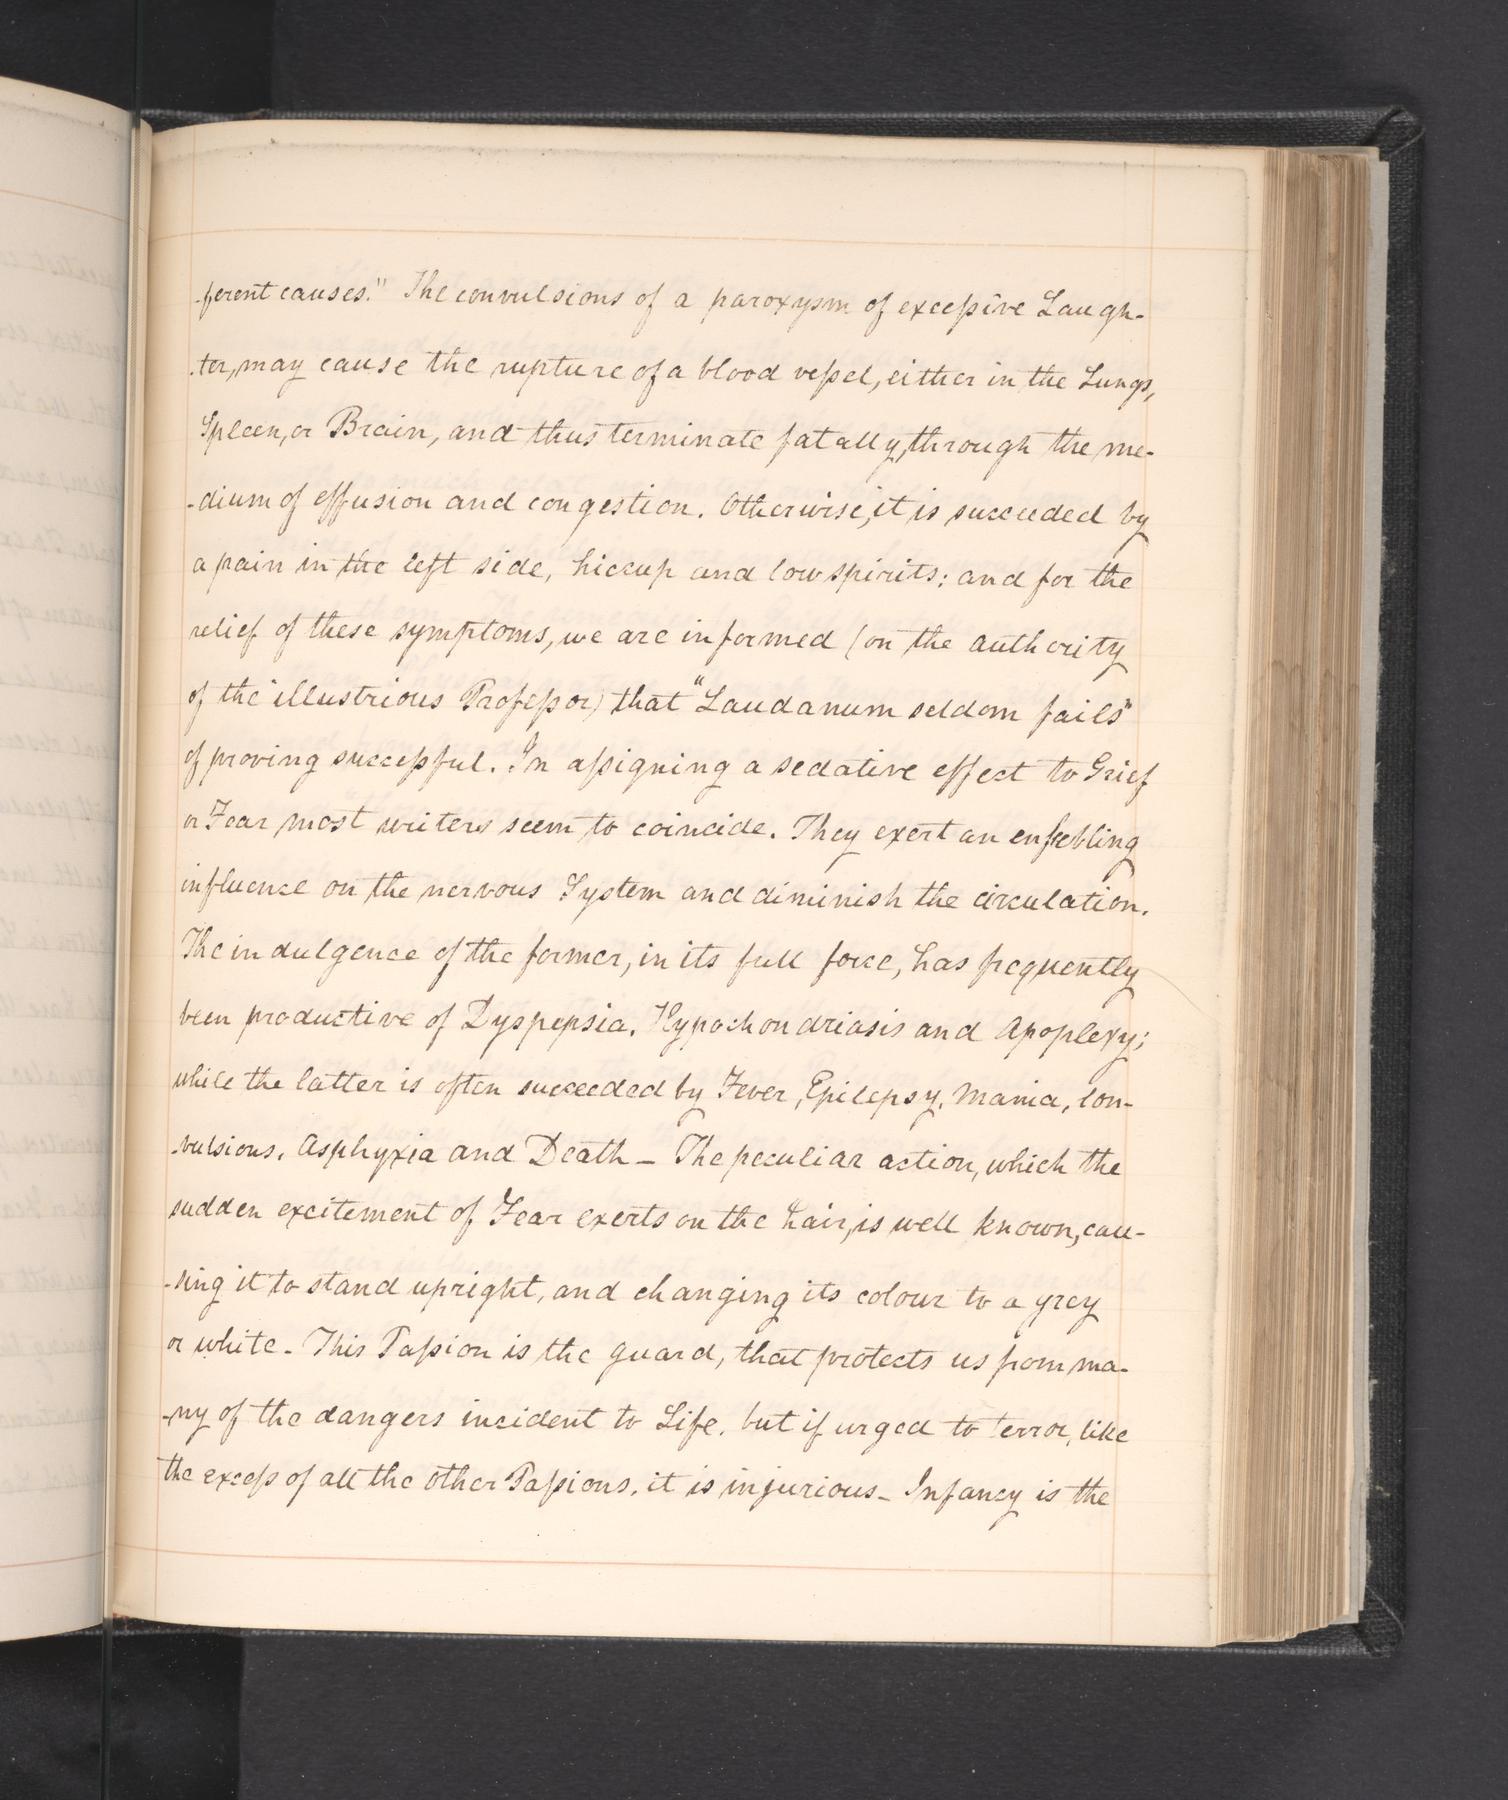 -ferent causes." The convulsions of a paroxysm of excessive Laugh-
-ter, may cause the rupture of a blood vessel, either in the Lungs,
Spleen, or Brain, and thus terminate fatally, through the me-
-dium of effusion and congestion. Otherwise, it is succeeded by
a pain in the left side, hiccup and low spirits; and for the
relief of these symptoms, we are informed (on the authority
of the illustrious Professor) that "Laudanum seldom fails"
of proving successful. In assigning a sedative effect to Grief
or Fear most writers seem to coincide. They exert an enfebling
influence on the nervous System and diminish the circulation.
The indulgence of the former, in its full force, has frequently
been productive of Dyspepsia, Hypochondriasis and Apoplexy;
while the latter is often succeeded by Fever, Epilepsy, Mania, Con-
-vulsions, Asphyxia and Death - The peculiar action, which the
sudden excitement of Fear exerts on the hair, is well known, cau-
-sing it to stand upright, and changing its colour to a grey
or white - This Passion is the guard, that protects us from ma-
-ny of the dangers incident to Life, but if urged to terror, like
the excess of all the other Passions, it is injurious - Infancy is the